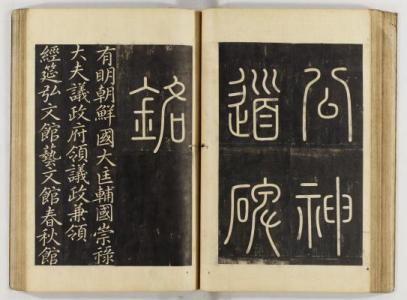 公神
道碑
銘
有明朝鮮國大匡輔國崇祿
大夫議政府領議政兼領
經筵弘文館藝文館春秋館